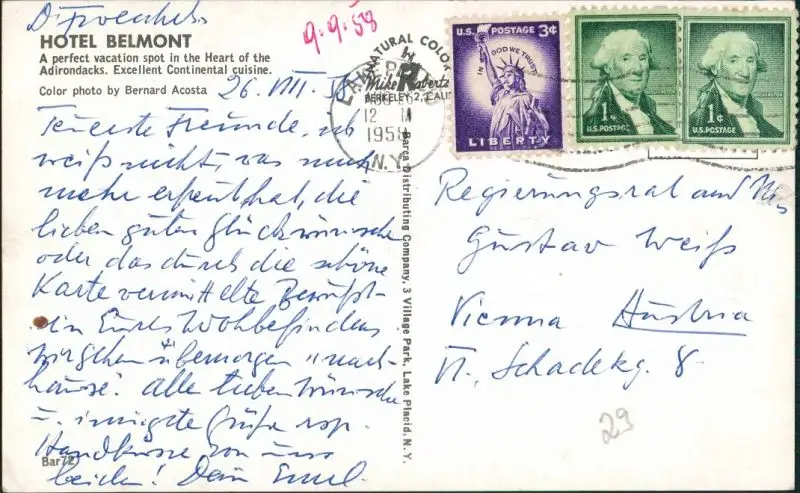 D. Froeschels
HOTEL BELMONT
A perfect vacation spot in the Heart of the
Adirondacks. Excellent Continental cuisine.
Color photo by Bernard Acosta
26. VIII.
Teuerste Freunde, ich
weiß nicht, was mich
mehr erfreut hat, die
lieben guten Glückwünsche
oder das durch die schöne
Karte vermittelte Bewußt-
sein Eures Wohbefindens.
Wir gehen übermorgen "nach
hause". Alle lieben Wünsche
u. innigste Grüße rsp.
Handküsse von uns
beiden! Dein Emil.
Bar72
9.9.58
NATURAL COLOR
Mike Roberts
BERKELEY 2, CALIF
12 M
1958
N.Y.
U.S. POSTAGE 3¢
IN GOD WE TRUST
LIBERTY
1¢
U.S. POSTAGE
1¢
U.S. POSTAGE
Barca Distributing Company, 3 Village Park, Lake Placid, N. Y.
Regierungsrat und
Gustav Weiß
Vienna Austria
VI. Schadekg. 8.
29